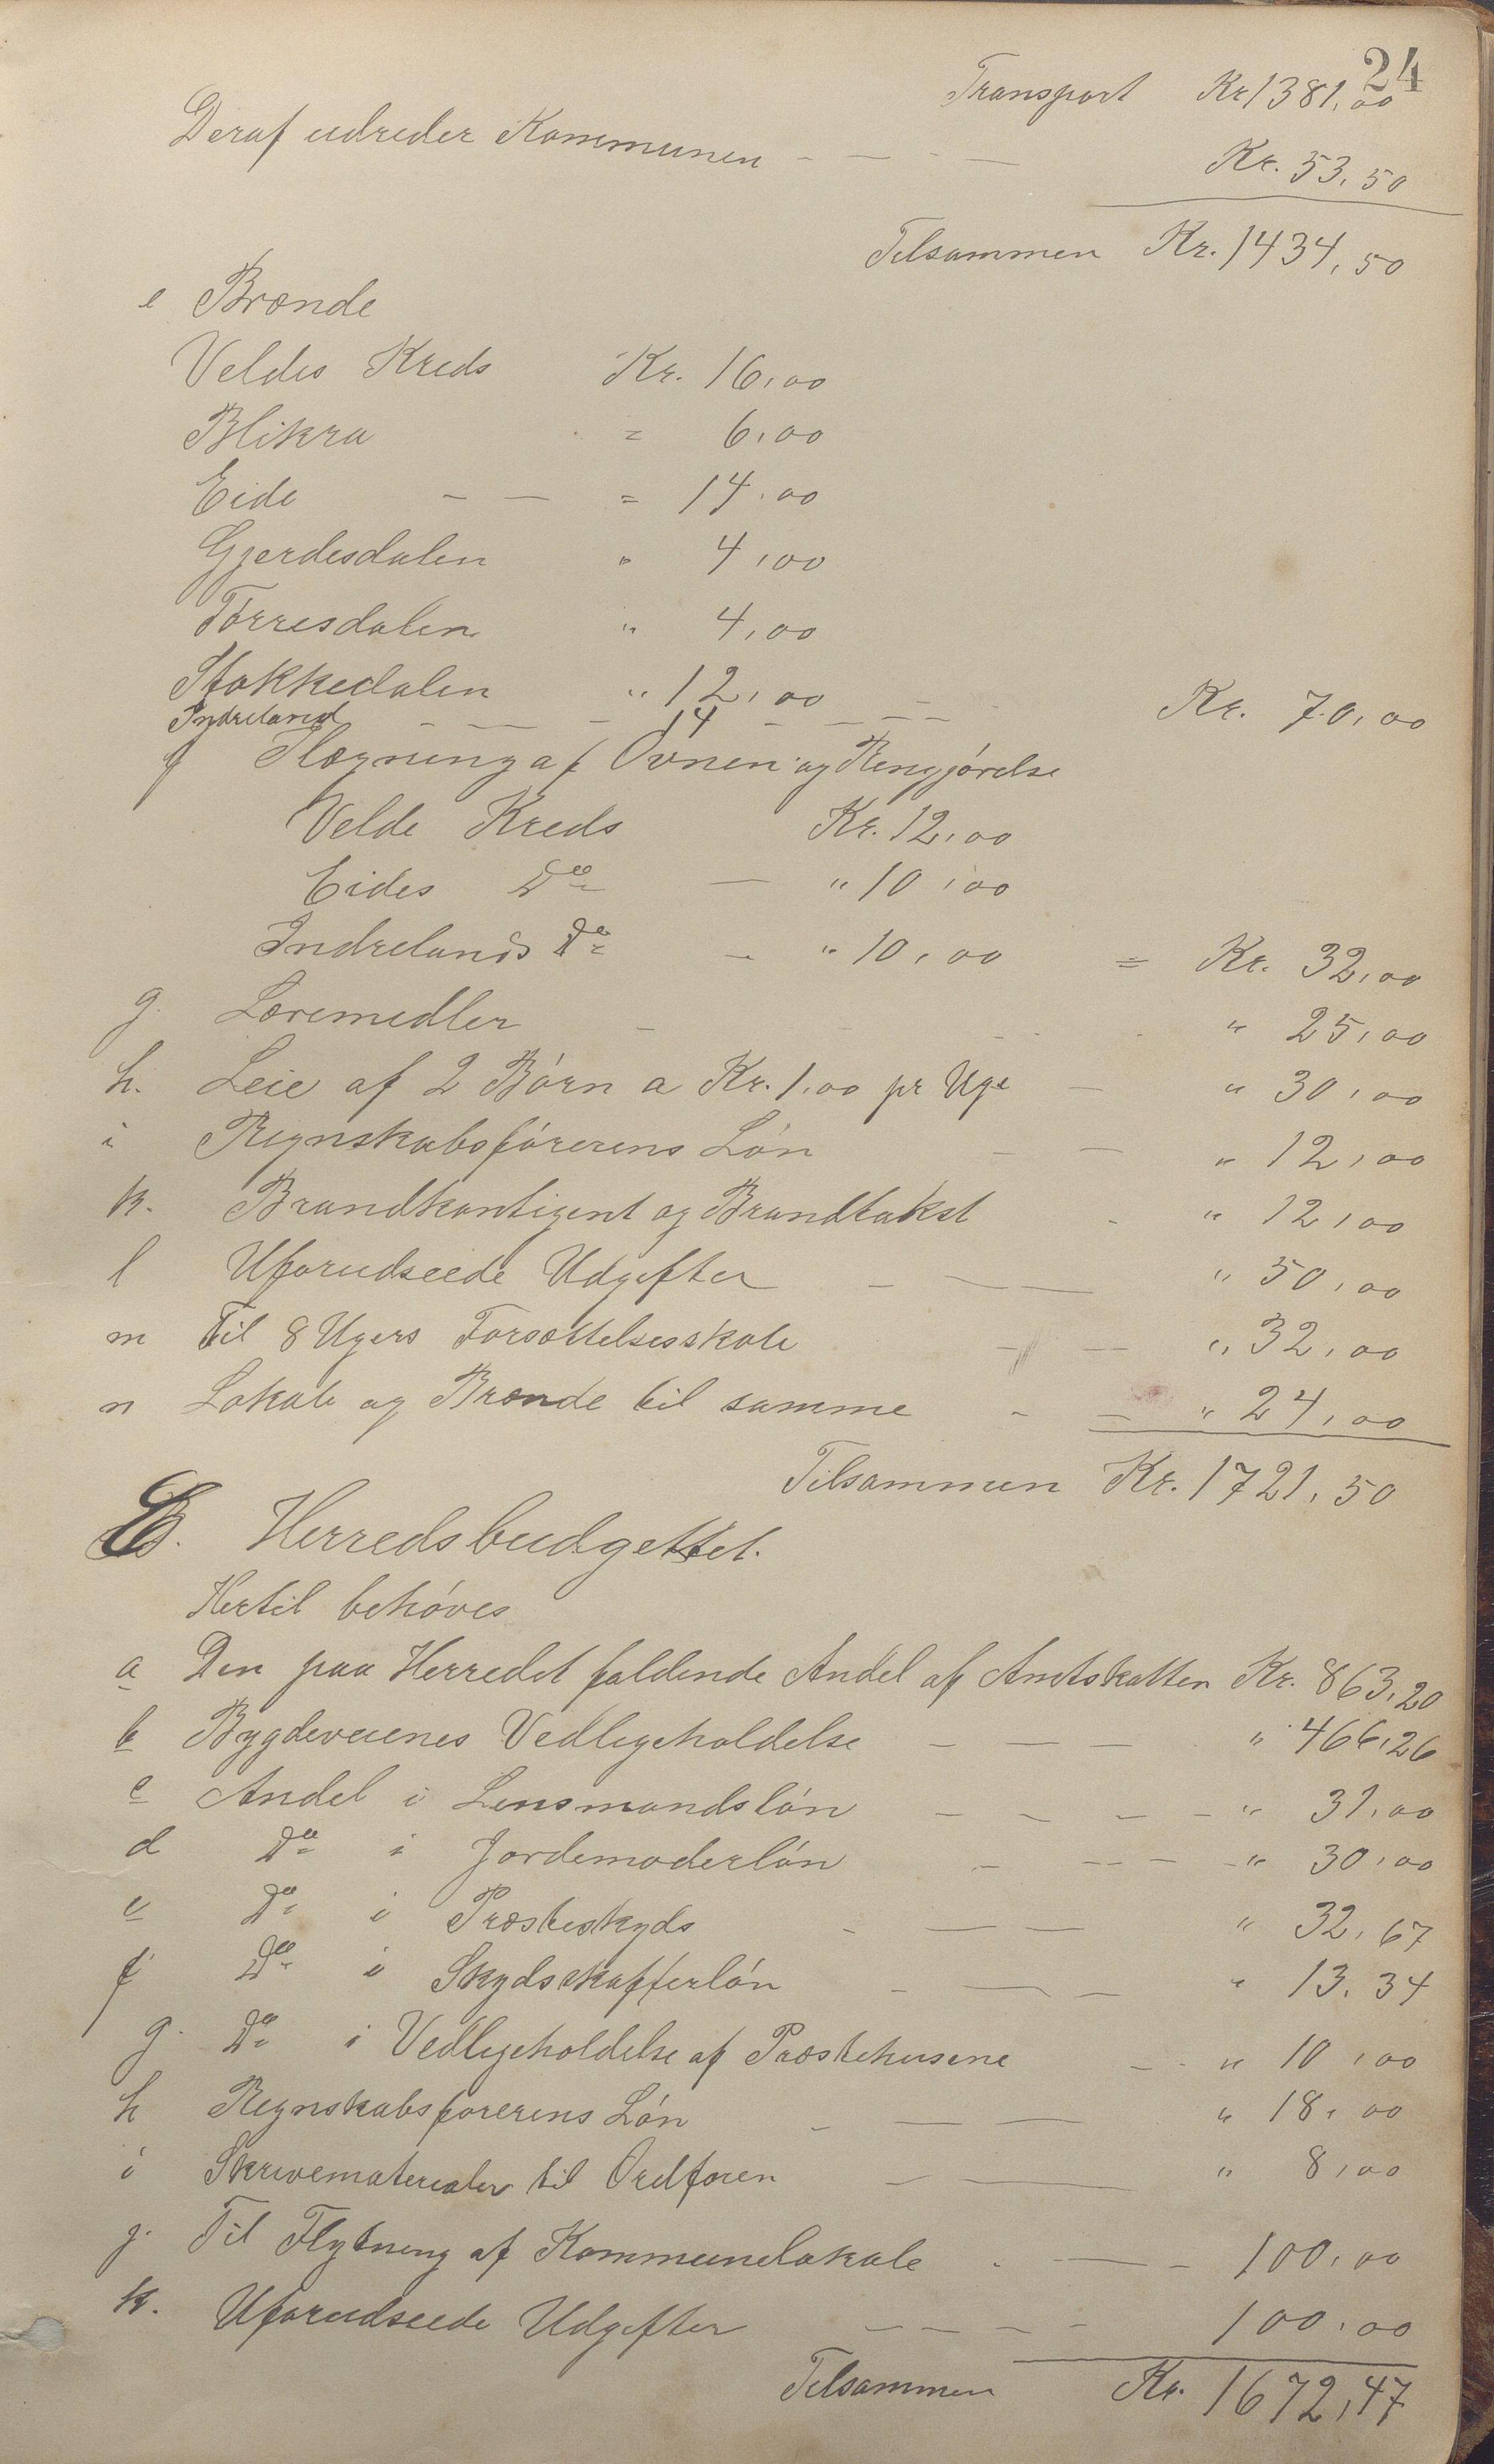 24
Transport Kr 1381,00
Deraf udreder Kommunen - - - - Kr. 53,50
Tilsammen Kr. 1434,50
e Brænde
Veldes Kreds Kr. 16,00
Blikra = 6,00
Eide - - = 14,00
Gjerdesdalen " 4,00
Tørresdalen " 4,00
Stokkedalen " 12,00 - - Kr. 70,00
Indreland - - - - 14 - - - -
f Lægning af Ovnen og Rengjørelse
Velde Kreds Kr. 12,00
Eides Do - " 10,00
Indrelands Do - " 10,00 = Kr. 32,00
g. Læremidler - - - - " 25,00
h. Leie af 2 Børn a Kr. 1,00 pr Uge - " 30,00
i Regnskabsførerens Løn - - " 12,00
k. Brandkontigent og Brandtakst - " 12,00
l Uforudseede Udgifter - - " 50,00
m Til 8 Ugers Forsættelsesskole - - " 32,00
n Lokale og Brænde til samme - - " 24,00
Tilsammen Kr. 1721,50
B. Herredsbudgettet.
Hertil behøves
a Den paa Herredet faldende Andel af Amtskatten Kr. 863,20
b Bygdeveienes Vedligeholdelse - - - " 466,26
c Andel i Lensmandsløn - - - - " 31,00
d Do i Jordemoderløn - - - - - " 30,00
e Do i Præsteskyds - - - " 32,67
f Do i Skydsskafferløn - - - " 13.34
g. Do i Vedligeholdelse af Præstehusene - - " 10,00
h Regnskabsforerens Løn - - - " 18,00
i Skrivematerialer til Ordforen - - " 8,00
j. Til Flytning af Kommunelokale - - - 100,00
k. Uforudseede Udgifter - - - - - 100,00
Tilsammen Kr. 1672,47